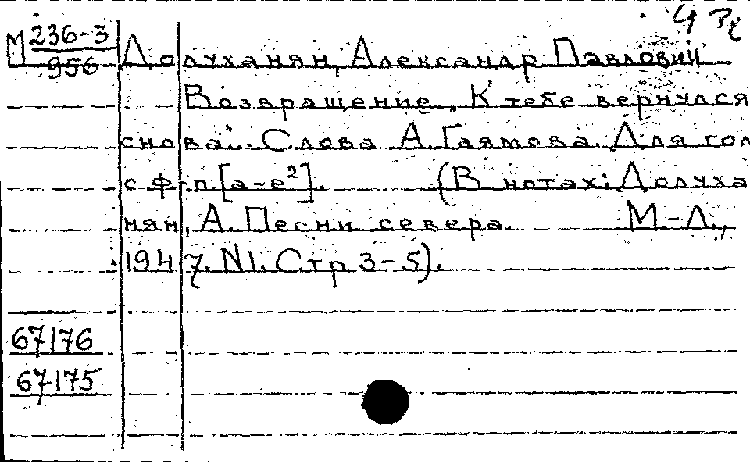 4 Рс
М 236-3
956
Долуханян, Александр Павлович
Возвращение. К тебе вернулся
снова... Слова А. Гаямова. Для гол
с ф-п. [a-e²]. (В нотах: Долуха
нян, А. Песни севера. М-Л.,
1947. N1. Стр 3-5).
67176
67175